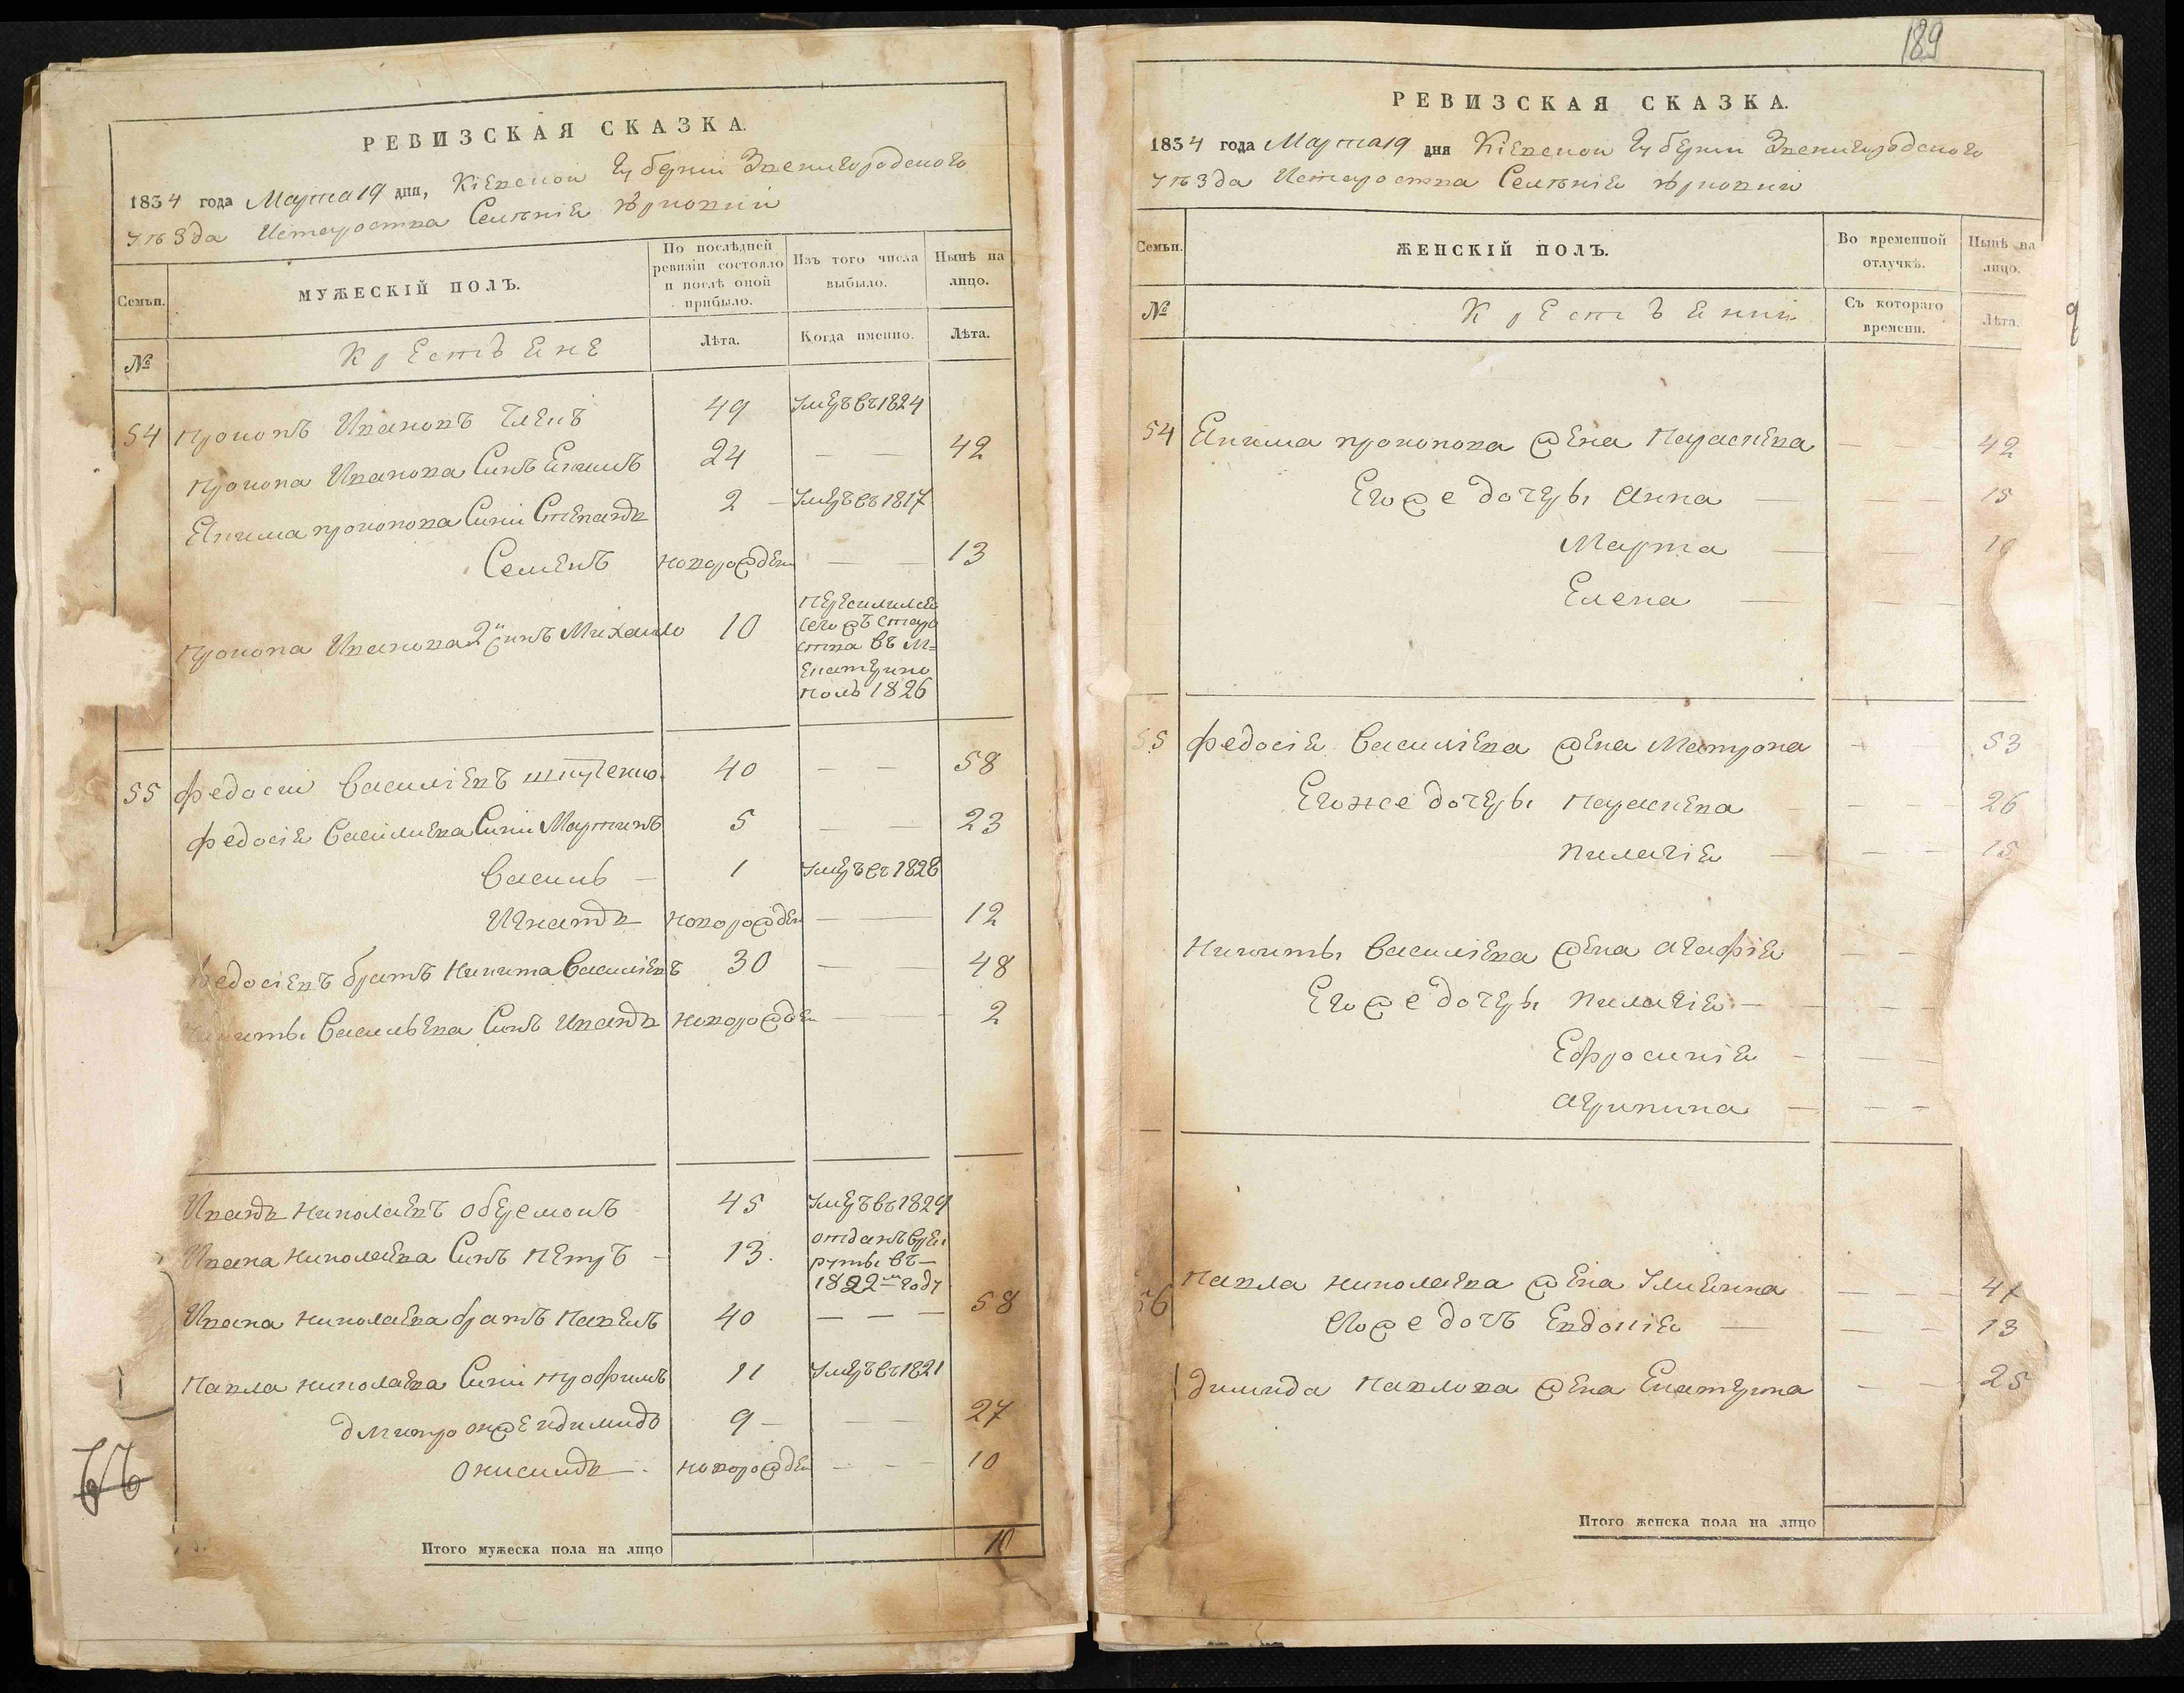 РЕВИЗСКАЯ СКАЗКА.
1834 года Марта 19 дня, Кіевской Губерніи Звенигородского
уѣзда Истароства Селѣнія
Семьи.
МУЖЕСКІЙ ПОЛЪ.
По послѣдней ревизіи состояло и послѣ оной прибыло.
Изъ того числа выбыло.
Нынѣ на лицо.
№
Крестьяне
Лѣта.
Когда именно.
Лѣта.
54 Прокопъ Ивановъ 49 умеръ въ 1824
Прокопа Иванова Синъ Екимъ 24 — — 42
Екима прокопова Сини Степанъ 2 — умеръ въ 1817
Семенъ новорожден — — 13
Прокопа Иванова 2й синъ Михайло 10
Переселился
сего жъ старо
ства въ м=
Екатерино
поль 1826
55 Федосій Василіевъ 40 — — 58
Федосія Василиева Сини Мартинъ 5 — — 23
Василь — 1 умеръ въ 1828
Игнатъ новорожден — — 12
Федосіевъ братъ Никита Василіевъ 30 — — 48
Никиты Васильева Синъ Иванъ новорожден — — 2
Иванъ Николаевъ 45 умеръ въ 1829
Ивана Николаева Синъ Петръ — 13.
отданъ в рек
руты въ —
1822м году
Ивана Николаева братъ Павелъ 40 — — — 58
Павла Николаева Сини Трофимъ 11 умеръ въ 1821
Дмитро онже идимидъ 9 — — — 27
Онисимъ — новорожден — — — 10
Итого мужеска пола на лицо 10
189
РЕВИЗСКАЯ СКАЗКА.
1834 года Марта 19 дня Кіевской Губерніи Звенигородского
уѣзда Истароства Селѣнія
Семьи.
ЖЕНСКІЙ ПОЛЪ.
Во временной отлучкѣ.
Нынѣ на лицо.
№
Крестьянки
Съ котораго времени.
Лѣта.
54 Екима прокопова жена Параскева — — 42
Егоже дочеры Анна — — — 15
Марта — — —
Елена — — —
55 Федосія Василіева жена Матрона — 53
Егоже дочеры Параскева — — — 26
Пилагія — — — 15
Никиты Василіева жена Агафія — —
Егоже дочеры Пилагія — — —
Ефросинія — — —
Агрипина — — —
56 Павла Николаева жена Улияна — — — 47
Егоже дочъ Евдокія — — — 13
Димида Павлова жена Екатерина — — 25
Итого женска пола на лицо